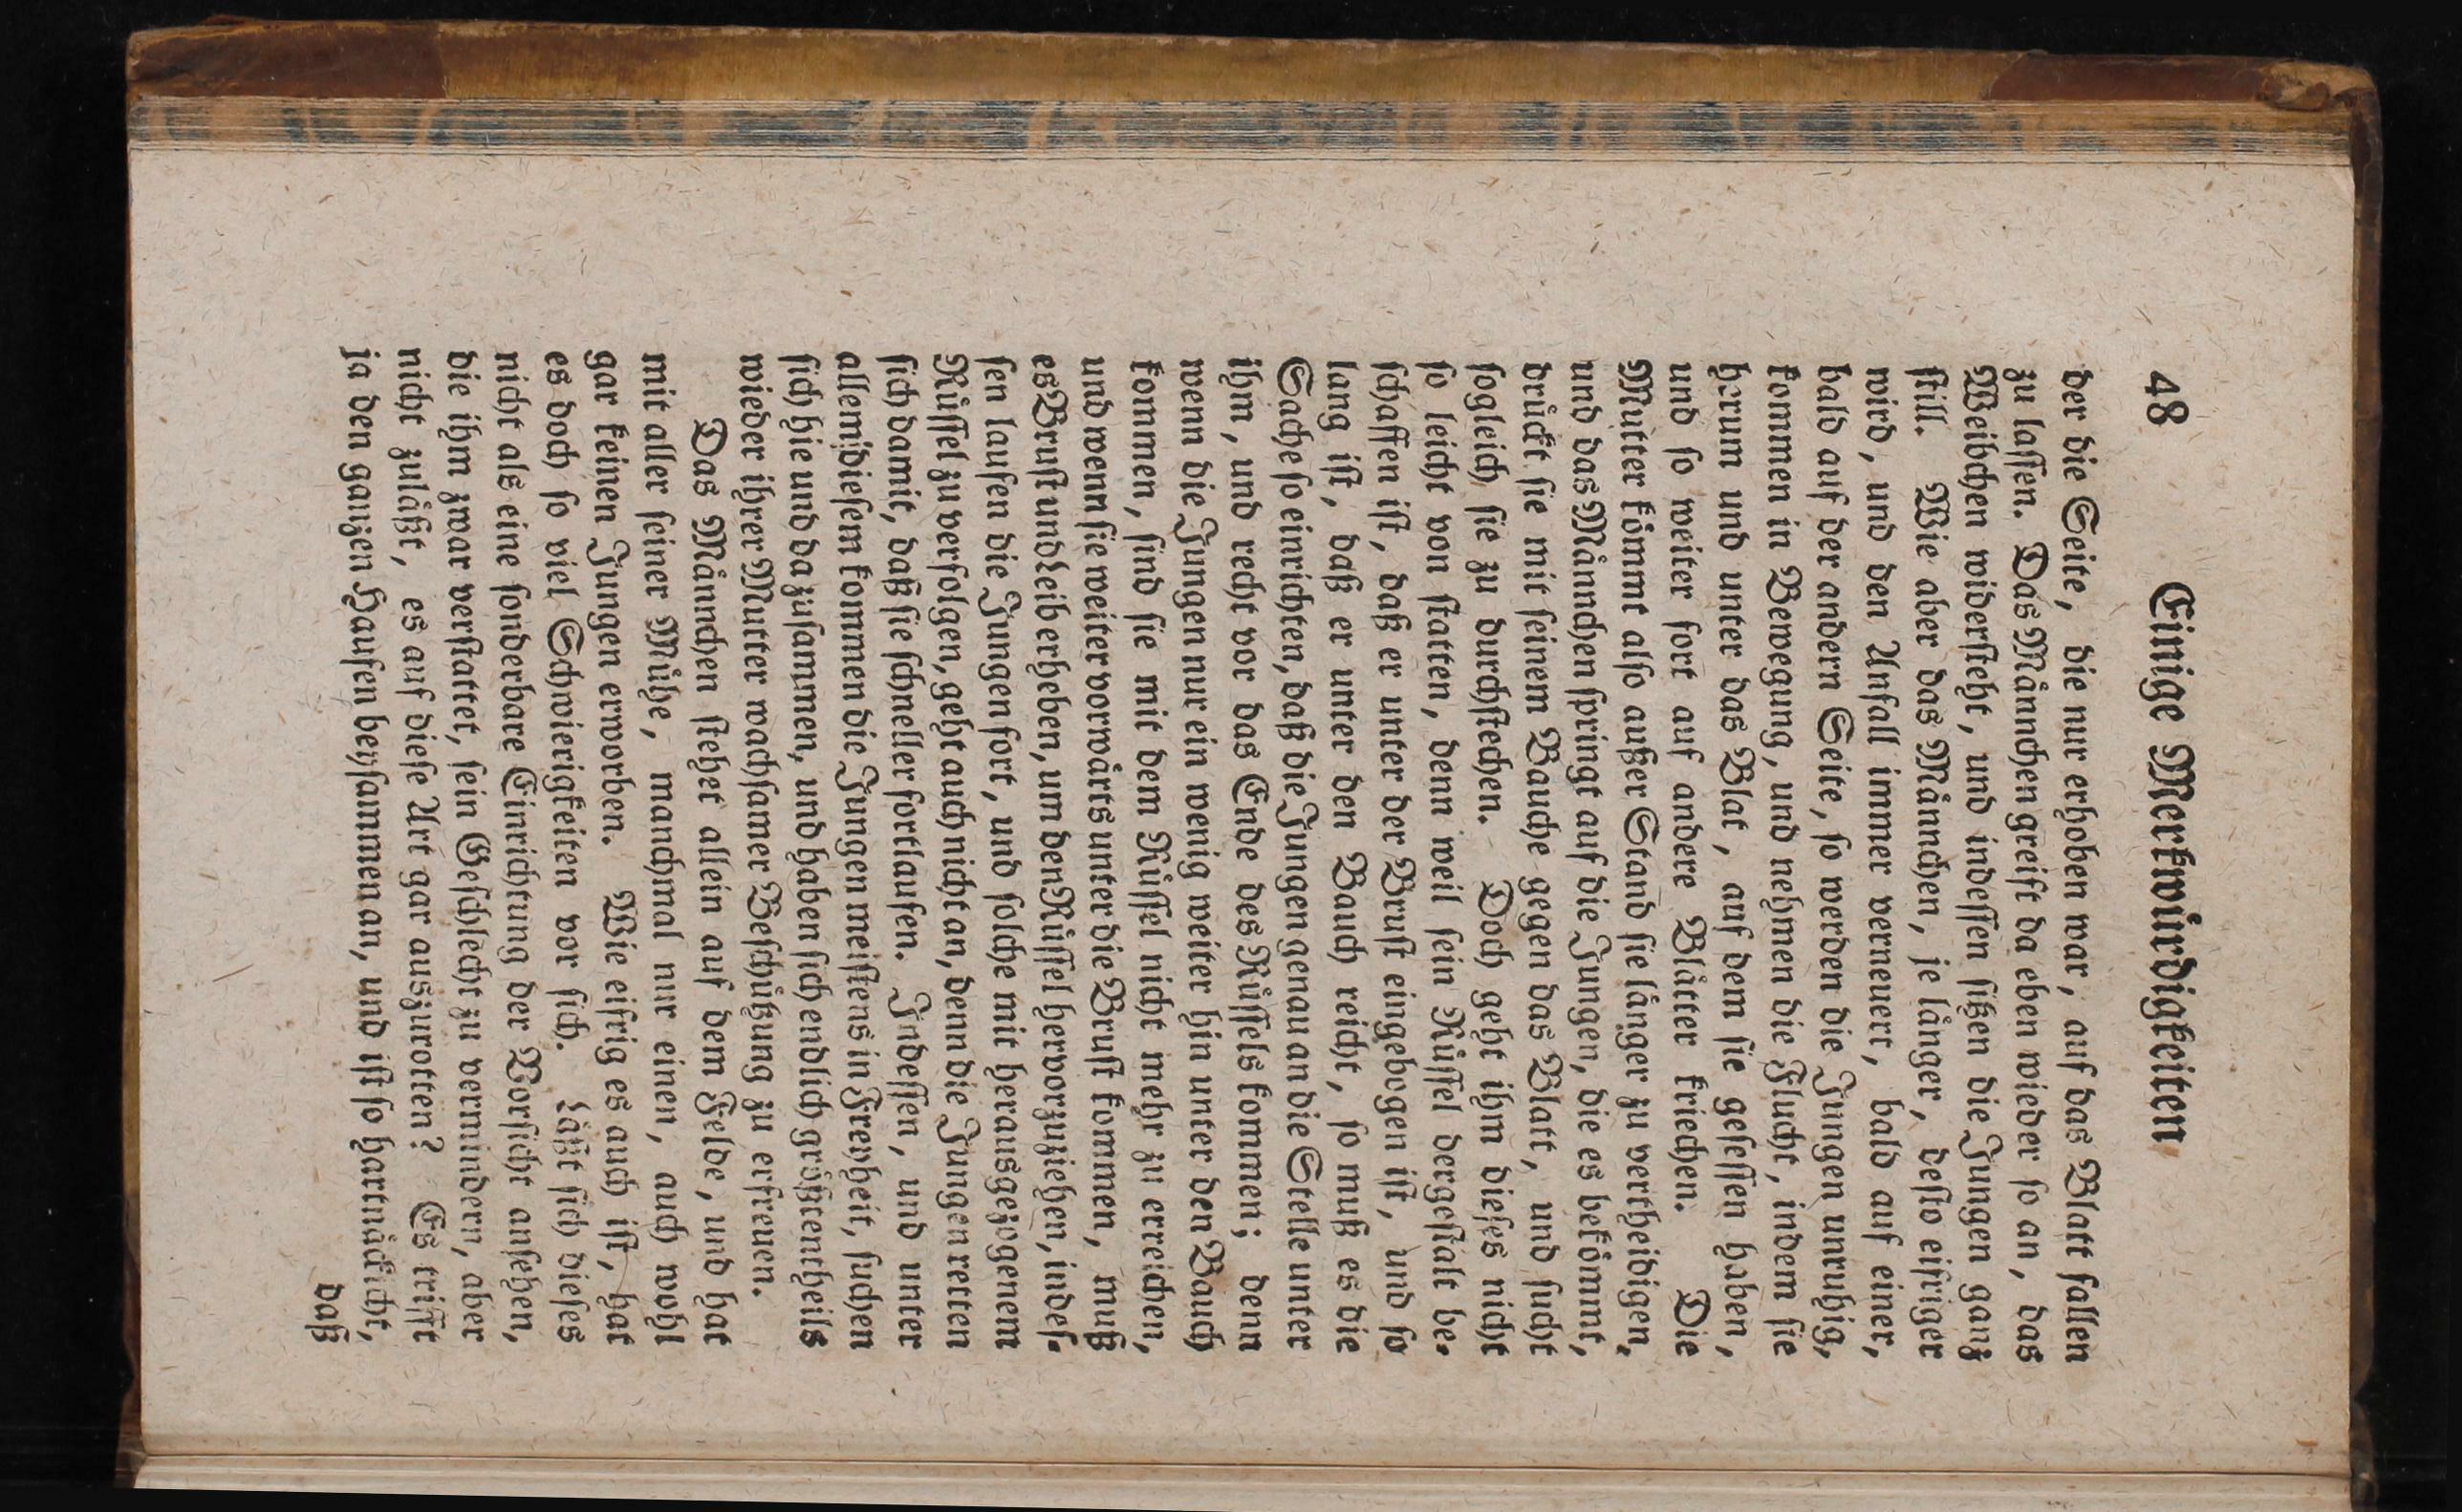 48 Einige Merkwürdigkeiten
der die Seite, die nur erhoben war, auf das Blatt fallen
zu laſſen. Das Männchen greift da eben wieder ſo an, das
Weibchen widerſteht, und indeſſen ſitzen die Jungen ganz
ſtill. Wie aber das Männchen, je länger, deſto eifriger
wird, und den Anfall immer verneuert, bald auf einer,
bald auf der andern Seite, ſo werden die Jungen unruhig,
kommen in Bewegung, und nehmen die Flucht, indem ſie
herum und unter das Blat, auf dem ſie geſeſſen haben,
und ſo weiter fort auf andere Blätter kriechen. Die
Mutter kömmt alſo außer Stand ſie länger zu vertheidigen,
und das Männchen ſpringt auf die Jungen, die es bekömmt,
drückt ſie mit ſeinem Bauche gegen das Blatt, und ſucht
ſogleich ſie zu durchſtechen. Doch geht ihm dieſes nicht
ſo leicht von ſtatten, denn weil ſein Rüſſel dergeſtalt be-
ſchaffen iſt, daß er unter der Bruſt eingebogen iſt, und ſo
lang iſt, daß er unter den Bauch reicht, ſo muß es die
Sache ſo einrichten, daß die Jungen genau an die Stelle unter
ihm, und recht vor das Ende des Rüſſels kommen; denn
wenn die Jungen nur ein wenig weiter hin unter den Bauch
kommen, ſind ſie mit dem Rüſſel nicht mehr zu erreichen,
und wenn ſie weiter vorwärts unter die Bruſt kommen, muß
es Bruſt und Leib erheben, um den Rüſſel hervorzuziehen, indeſ-
ſen laufen die Jungen fort, und ſolche mit herausgezogenem
Rüſſel zu verfolgen, geht auch nicht an, denn die Jungen retten
ſich damit, daß ſie ſchneller fortlaufen. Indeſſen, und unter
allem dieſem kommen die Jungen meiſtens in Freyheit, ſuchen
ſich hie und da zuſammen, und haben ſich endlich größtentheils
wieder ihrer Mutter wachſamer Beſchützung zu erfreuen.
Das Männchen ſtehet allein auf dem Felde, und hat
mit aller ſeiner Mühe, manchmal nur einen, auch wohl
gar keinen Jungen erworben. Wie eifrig es auch iſt, hat
es doch ſo viel Schwierigkeiten vor ſich. Läßt ſich dieſes
nicht als eine ſonderbare Einrichtung der Vorſicht anſehen,
die ihm zwar verſtattet, ſein Geſchlecht zu vermindern, aber
nicht zuläßt, es auf dieſe Art gar auszurotten? Es trifft
ja den ganzen Haufen beyſammen an, und iſt ſo hartnäckicht,
daß